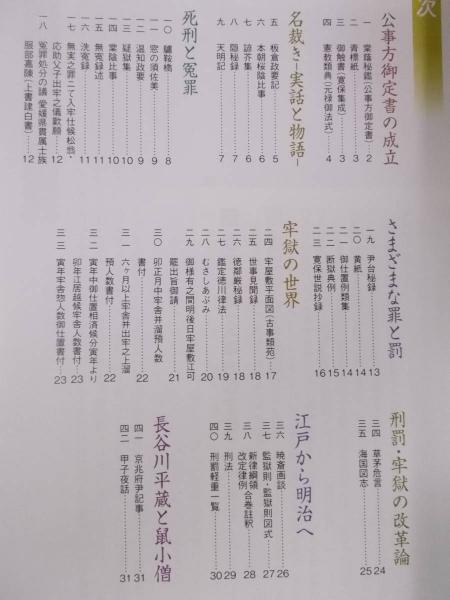 次
公事方御定書の成立
一 棠陰秘鑑(公事方御定書) 2
二 青標紙 3
三 御触書(寛保集成) 3
四 憲教類典(元禄御法式) 4
名裁き―実話と物語―
五 板倉政要記 5
六 本朝桜陰比事 6
七 諺芥集 6
八 隠秘録 7
九 天明記 7
死刑と冤罪
一〇 驢鞍橋 8
一一 窓の須佐美 9
一二 温知政要 9
一三 疑獄集 10
一四 棠陰比事 10
一五 無冤録述 11
一六 洗冤録 11
一七 無実之罪ニて入牢仕候松翁、
応助父子出牢之儀歎願 12
一八 冤罪処分の議 愛媛県貫属士族
服部嘉陳(上書建白書) 12
さまざまな罪と罰
一九 尹台秘録 13
二〇 黄紙 14
二一 御仕置例類集 14
二二 断獄典例 15
二三 寛保世説抄録 16
牢獄の世界
二四 牢屋敷平面図(古事類苑) 17
二五 世事見聞録 18
二六 徳鄰厳秘録 18
二七 鑑定徳川律法 19
二八 むさしあぶみ 20
二九 御様有之間明後日牢屋敷江可
罷出旨御請 21
三〇 卯正月中牢舎并溜預人数
書付 22
三一 六ヶ月以上牢舎并出牢之上溜
預人数書付 22
三二 寅年中御仕置相済候分寅年より
卯年江居越候牢舎人数書付 23
三三 寅年牢舎惣人数御仕置書付 23
刑罰・牢獄の改革論
三四 草茅危言 24
三五 海国図志 25
江戸から明治へ
三六 暁斎画談 26
三七 監獄則・監獄則図式 27
三八 新律綱領
改定律例合巻註釈 28
三九 刑法 29
四〇 刑罰軽重一覧 30
長谷川平蔵と鼠小僧
四一 京兆府尹記事 31
四二 甲子夜話 31